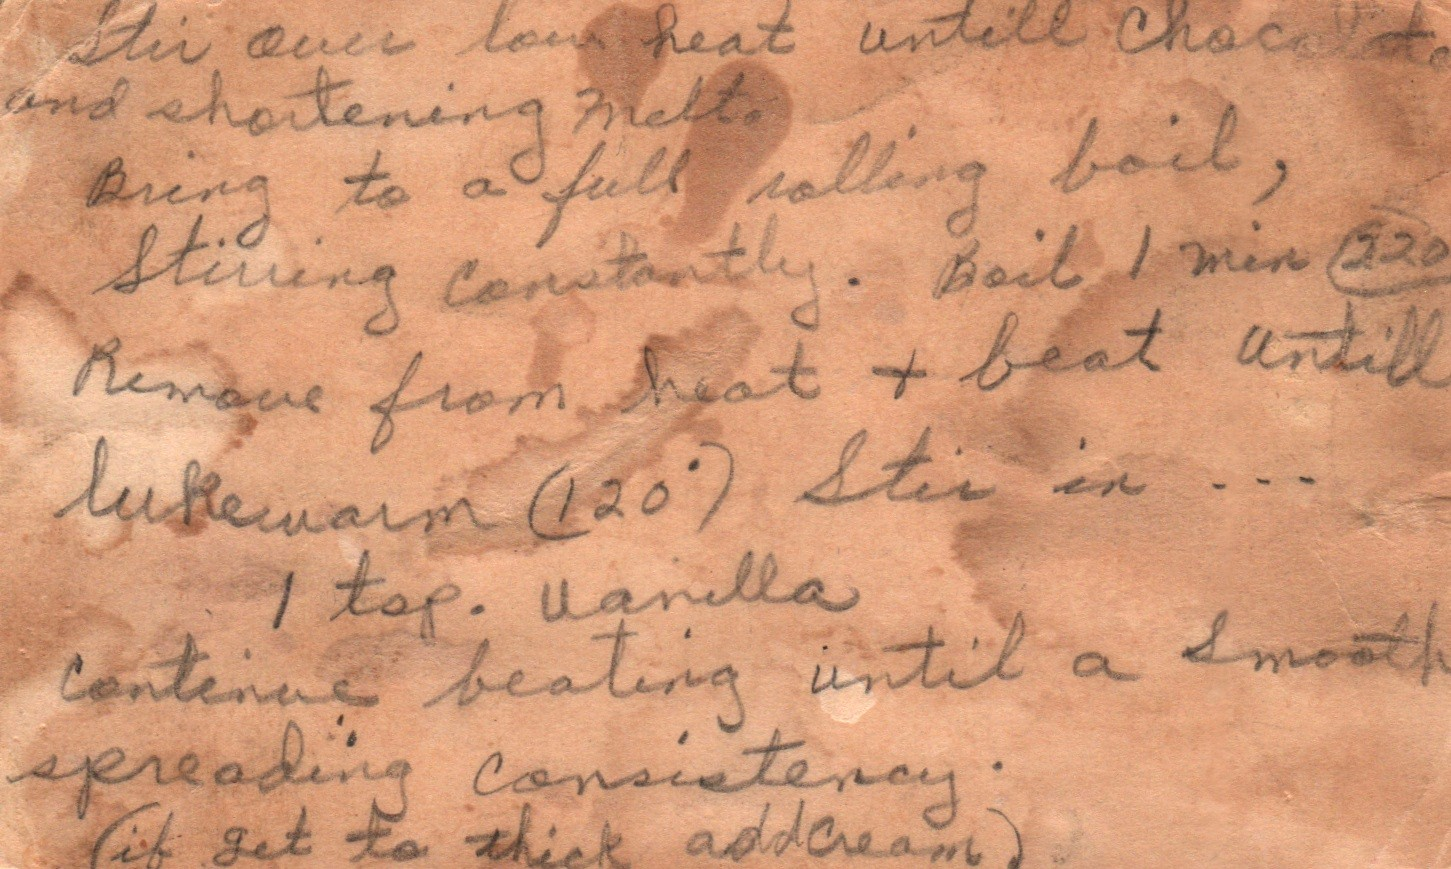 Stir over low heat untill Chocolate
and shortening melt.
Bring to a full rolling boil,
Stirring constantly. Boil 1 min (220
Remove from heat + beat untill
lukewarm (120°) Stir in ...
1 tsp. vanilla
continue beating until a smooth
spreading consistency.
(if get to thick add cream)